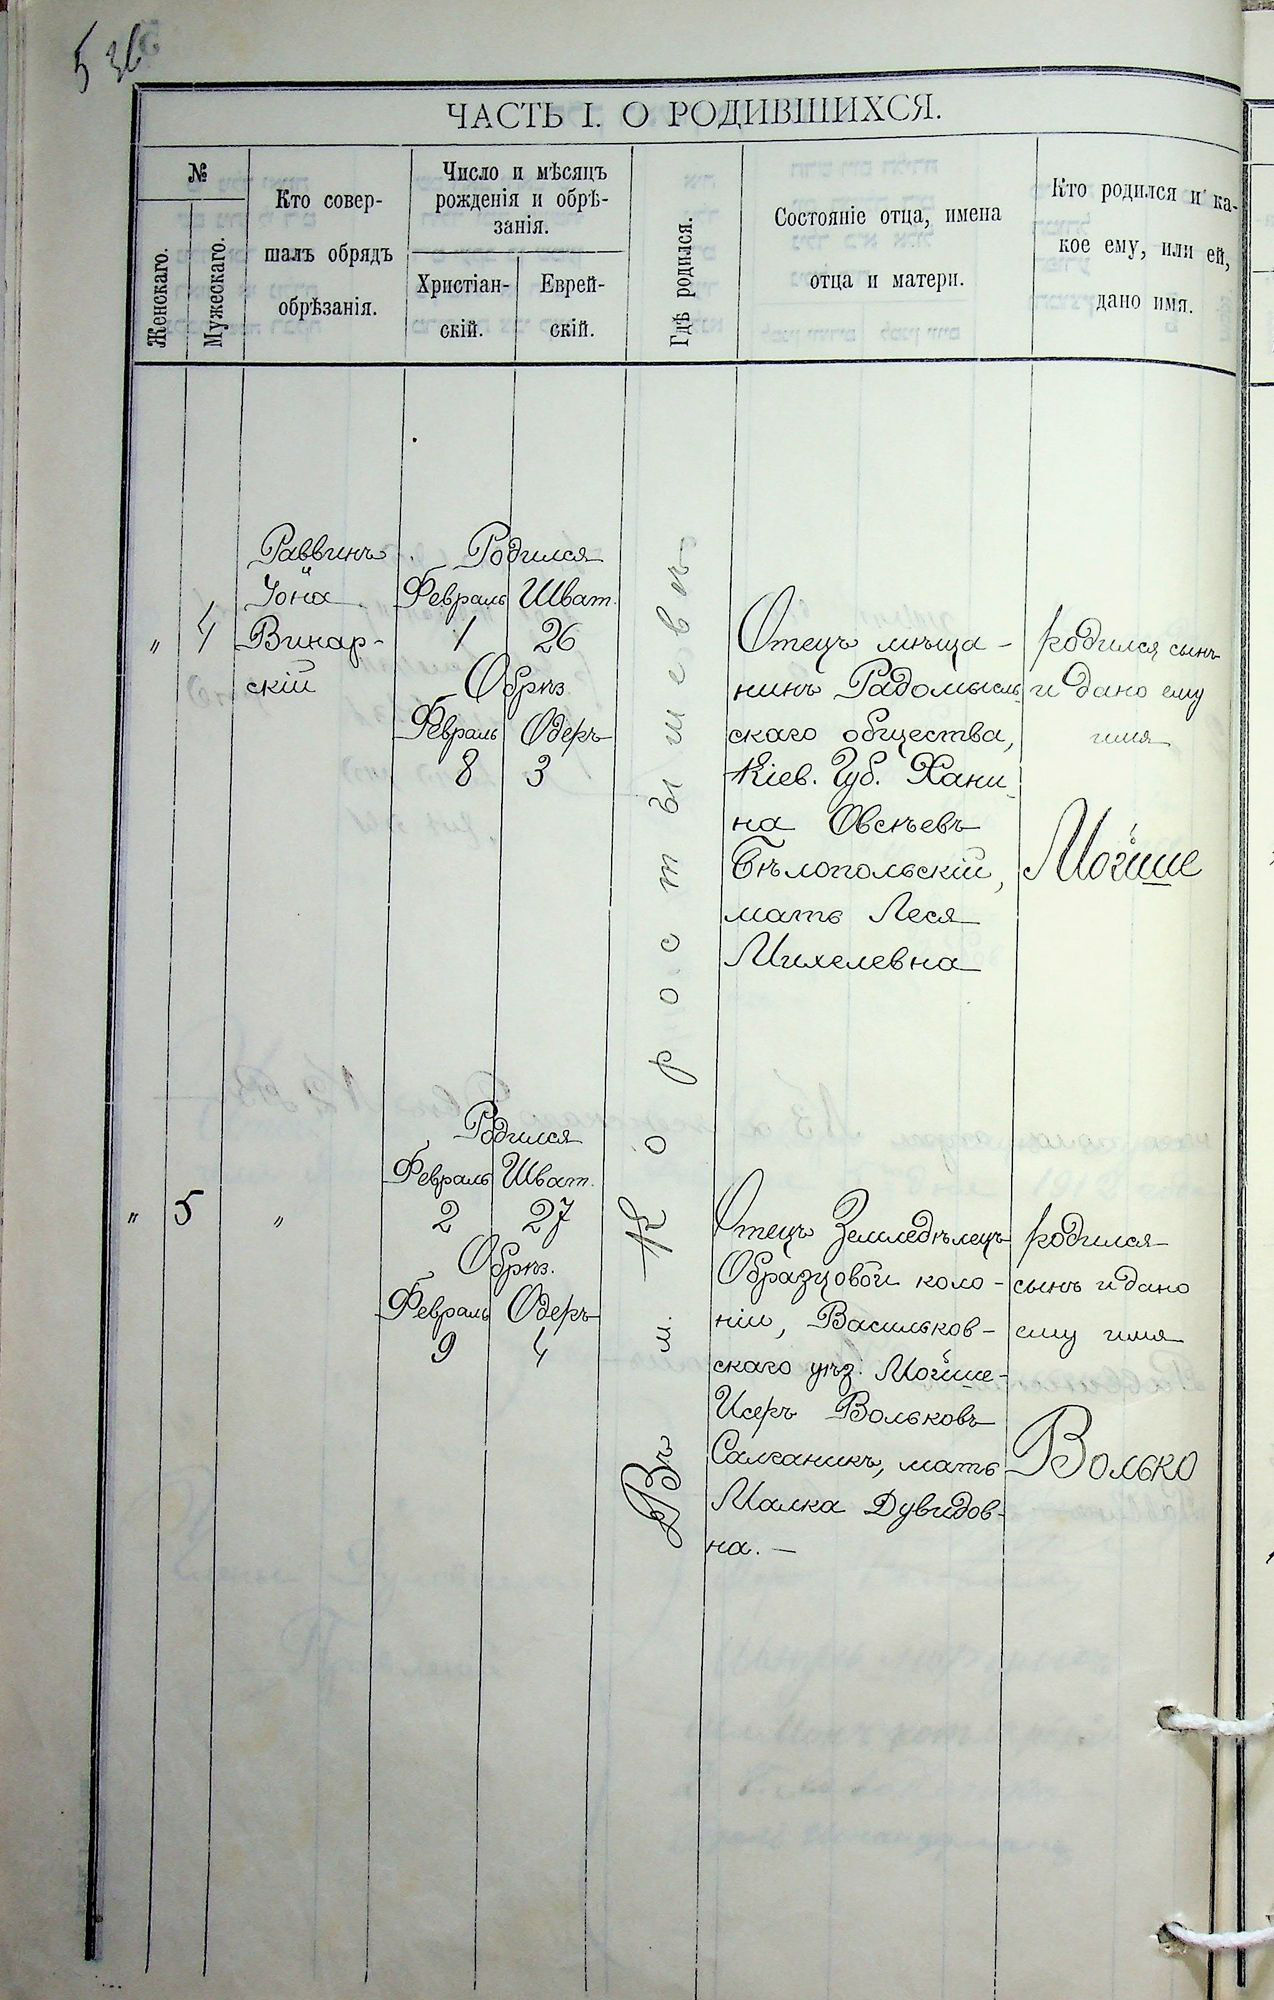 5 об
ЧАСТЬ I. О РОДИВШИХСЯ.
№
Женскаго.
Мужескаго.
Кто совер-
шалъ обрядъ
обрѣзанія.
Число и мѣсяцъ
рожденія и обрѣ-
занія.
Христіан-
скій.
Еврей-
скій.
Гдѣ родился.
Состояніе отца, имена
отца и матери.
Кто родился и ка-
кое ему, или ей,
дано имя.
"
4
Раввинъ
Іона
Винар-
скій
Родился
Февраль Шват.
1 26
Обрѣз
Февраль Одеръ
8 3
Въ м. Коростышевѣ
Отецъ мѣща-
нинъ Радомысль
скаго общества,
Кіев. Губ. Хани-
на Овсѣевъ
Бѣлопольскій,
мать Леся
Михелевна
родился сынъ
и дано ему
имя
Мойше
"
5
"
Родился
Февраль Шват.
2 27
Обрѣз.
Февраль Одеръ
9 4
Отецъ Земледѣлецъ
Образцовой коло-
ніи, Васильков-
скаго уѣз. Мойше-
Исеръ Вольковъ
Салганикъ, мать
Малка Дувидов-
на. —
родился
сынъ и дано
ему имя
Волько